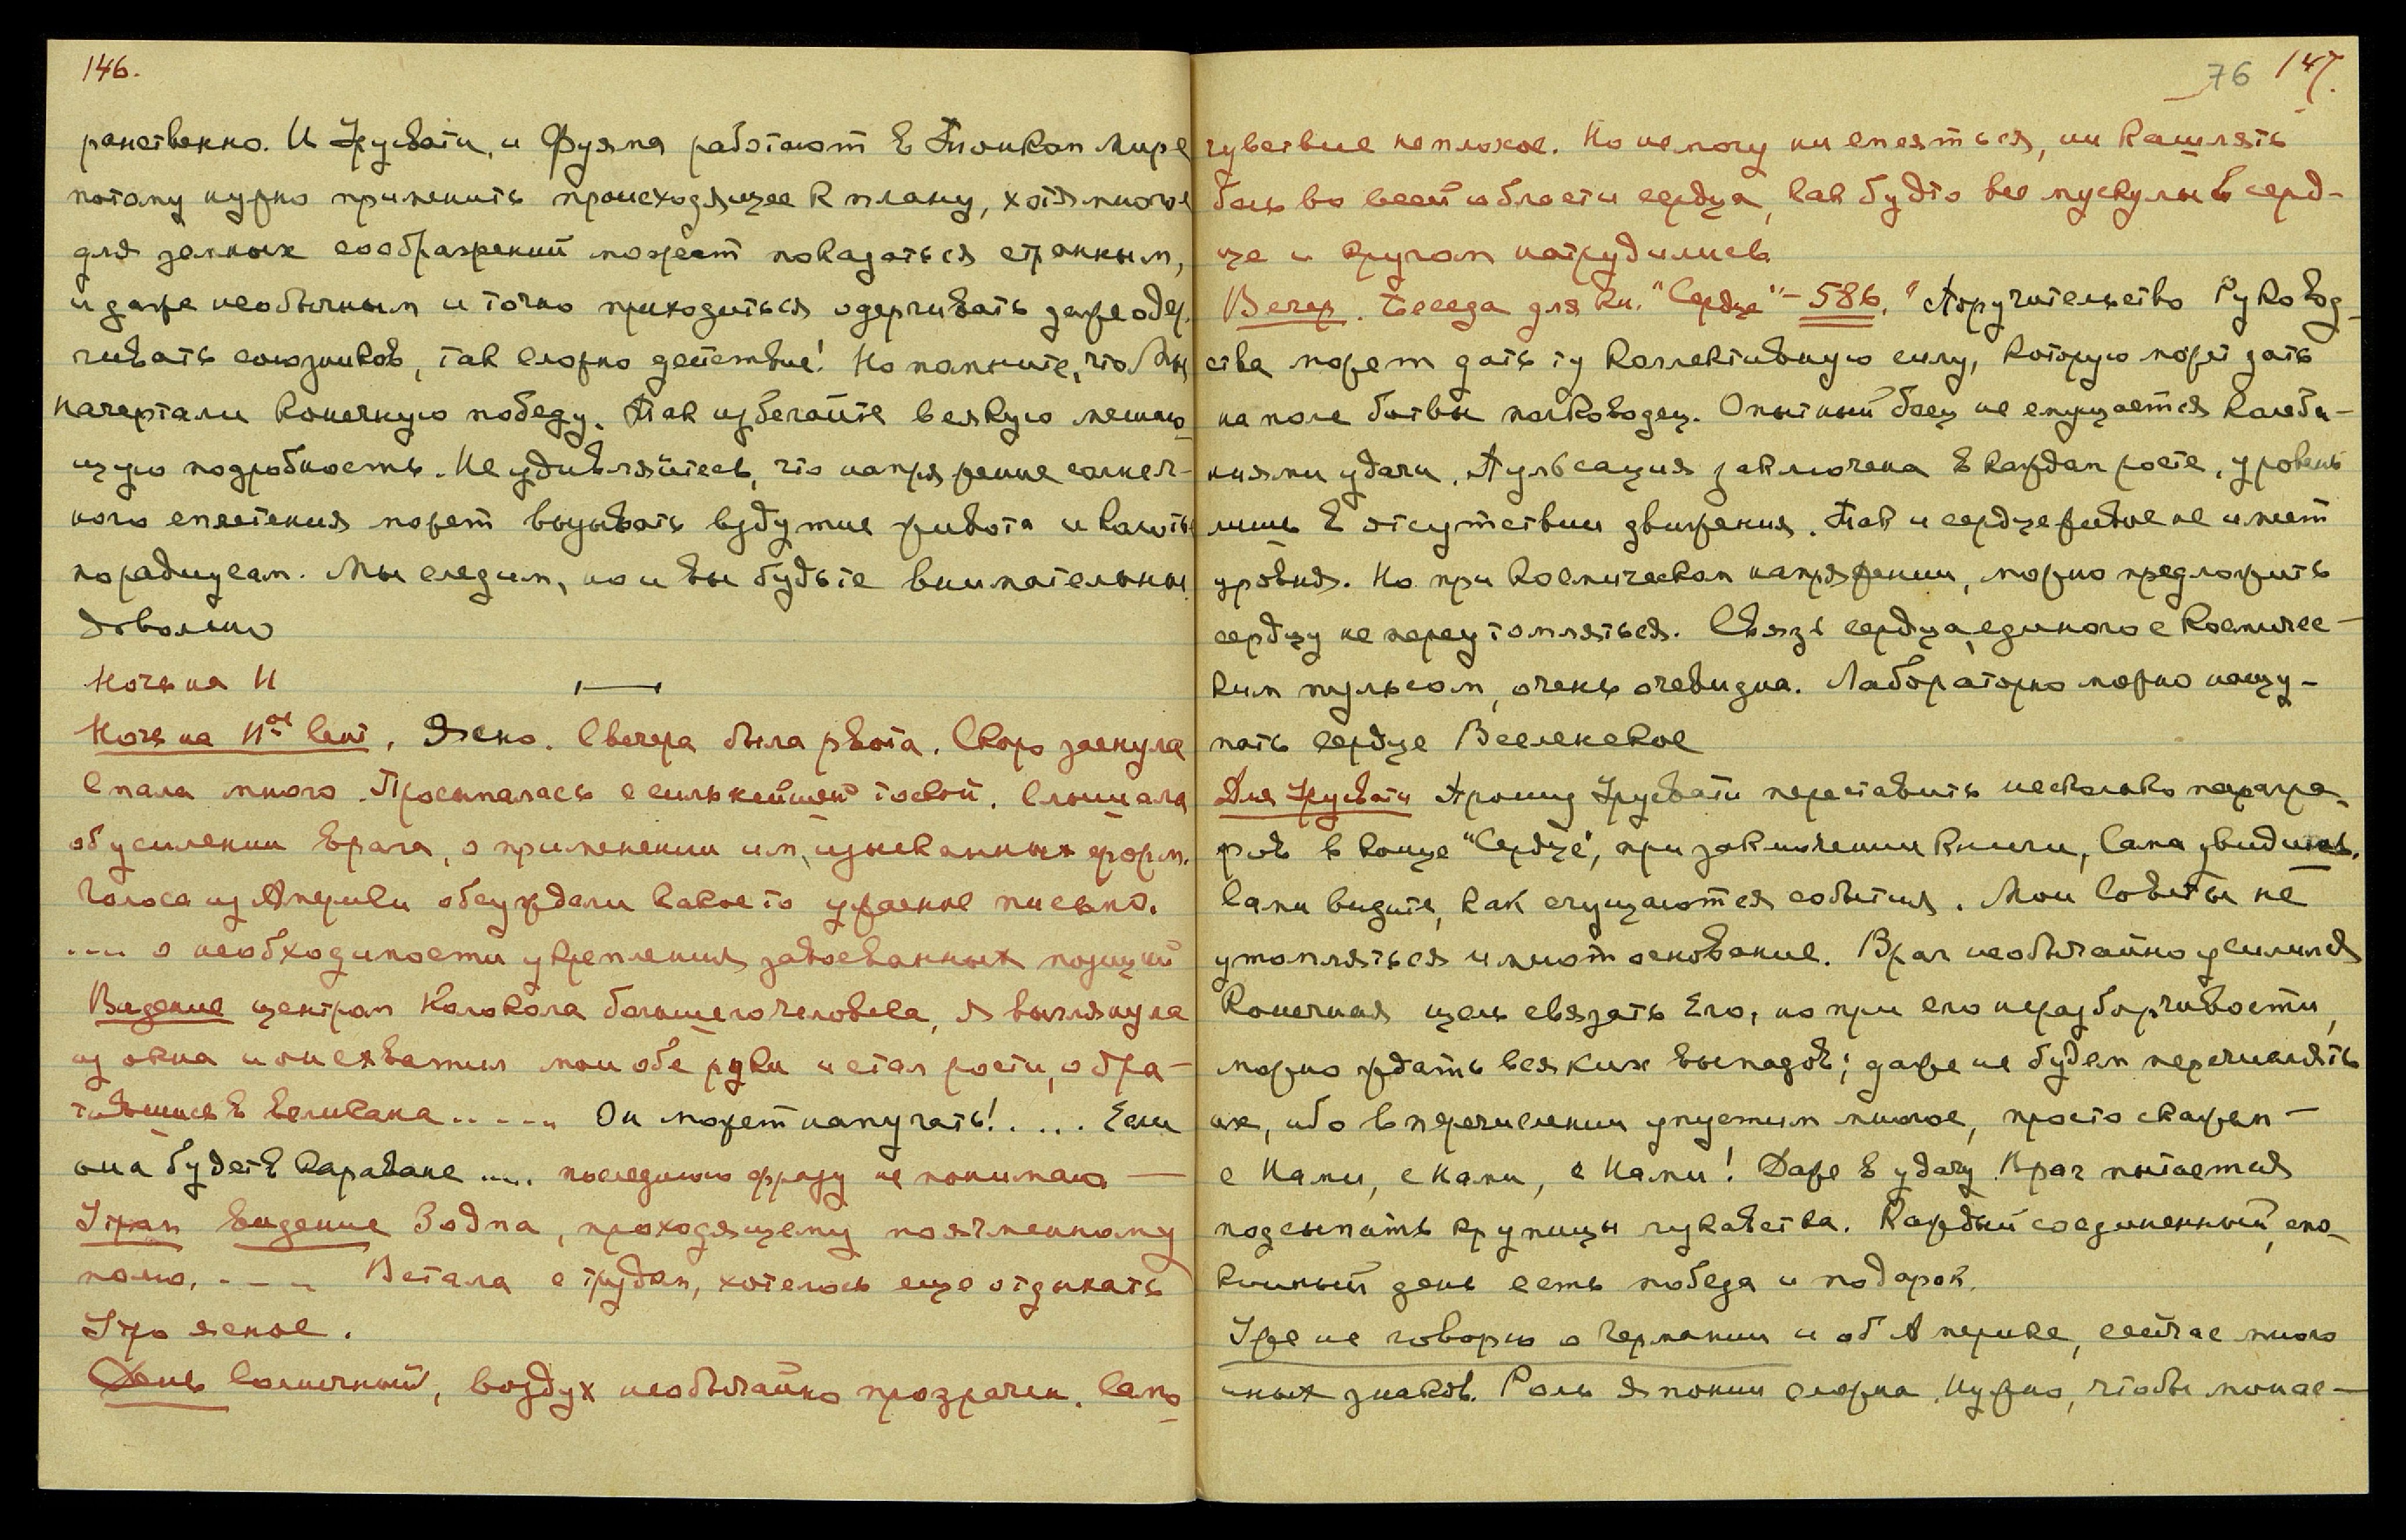 146.
ранственно. И Урусвати, и Фуяма работают в Тонком Мире
потому нужно применить происходящее к плану, хотя многое
для земных соображений может показаться странным,
и даже необычным и точно приходиться одерживать даже одер-
живать союзников, так сложно действие! Но помните, что Мы
начертали конечную победу. Так избегайте всякую мешаю-
щую подробность. Не удивляйтесь, что напряжение солнеч-
ного сплетения может вызывать вздутие живота и
по радиусам. Мы следим, но и вы будьте внимательны
довольно
Ночь на 11
Ночь на 11ое Сент. Ясно. С вечера была рвота. Скоро заснула
Спала много. Просыпалась с сильнейшей тоской. Слышала
об усилении врага, о применении им, изысканных форм.
Голоса из Америки обсуждали какое то ужасное письмо.
.... о необходимости укрепления завоеванных позиций
Видение центром Колокола большего человека, я выглянула
из окна и он схватил мои обе руки и стал рости, обра-
тившись в великана..... Он может напугать!.... Если
она будет в караване .... последнюю фразу не понимаю —
Утром видение Водпа, проходящему по ячменному
полю. .... Встала с трудом, хотелось еще отдыхать
Утро ясное.
День Солнечный, воздух необычайно прозрачен. Само
76 147.
чувствие неплохое. Но не могу ни смеяться, ни кашлять
боль во всей области сердца, как будто все мускулы в серд-
це и кругом натрудились
Вечер. Беседа для кн. "Сердце" – 586. "Поручительство Руковод-
ства может дать ту коллективную силу, которую может дать
на поле битвы полководец. Опытный боец не смущается колеба-
ниями удачи. Пульсация заключена в каждом росте, уровень
лишь в отсутствии движения. Так и сердце живое не имеет
уровня. Но при космическом напряжении, можно предложить
сердцу не переутомляться. Связь сердца, единого с космичес-
ким пульсом, очень очевидна. Лабораторно можно нащу-
пать сердце Вселенское
Для Урусвати Прошу Урусвати переставить несколько парагра-
фов в конце "Сердце", при заключении книги, Сама увидишь.
Сами видите, как сгущаются события. Мои Советы не
утомляться имеют основание. Враг необычайно усилился
Конечная цель связать Его, но при его неразборчивости,
можно ждать всяких выпадов; даже не будем перечислять
их, ибо в перечислении упустим многое, просто скажем —
с Нами, с Нами, с Нами! Даже в удачу Враг пытается
подсыпать крупицы лукавства. Каждый соединенный, спо-
койный день есть победа и подарок.
Уже не говорю о Германии и об Америке, сейчас много
иных знаков. Роль Японии сложна. Нужно, чтобы монас-